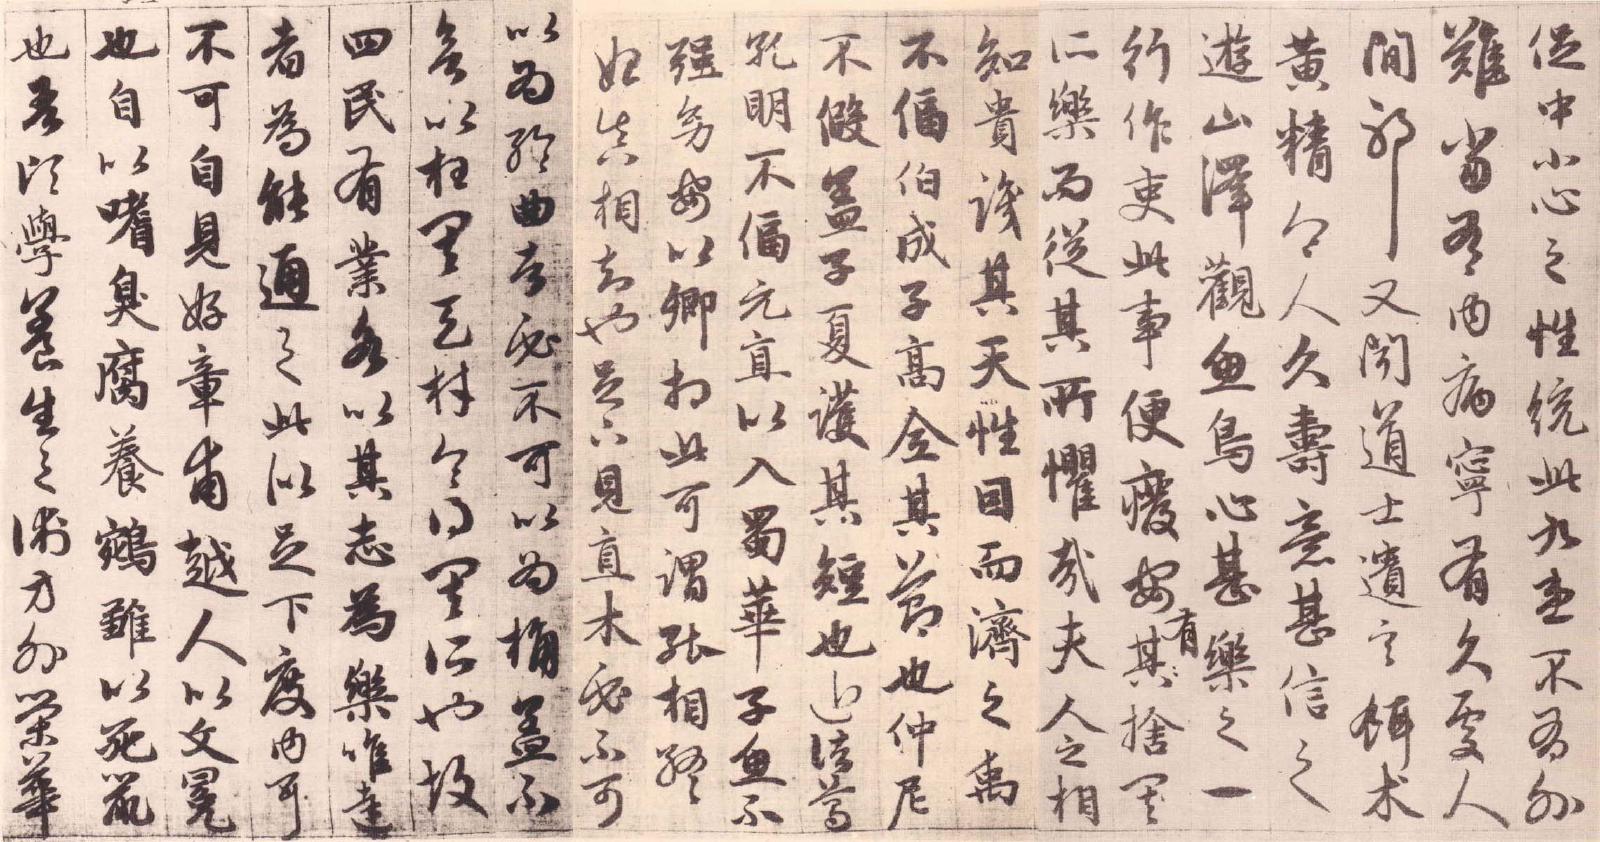 促中小心之性統此九患不有外
難當有內病寧有久處人
間邪又聞道士遺言餌术
黃精令人久壽意甚信之
遊山澤觀魚鳥心甚樂之一
行作吏此事便廢安有其捨其
所樂而從其所懼哉夫人之相
知貴識其天性因而濟之禹
不偪伯成子高全其節也仲尼
不假蓋子夏護其短也近諸葛
孔明不偪元直以入蜀華子魚不
强幼安以卿相此可謂能相終
始真相知也足下見直木必不可
以為輪曲者必不可以為桷蓋不
欲以枉其天材令得其所也故
四民有業各以其志為樂唯達
者為能通之此似足下度內耳
不可自見好章甫越人以文冕
也自以嗜臭腐養鵷雛以死鼠
也吾頃學養生之術方外榮華